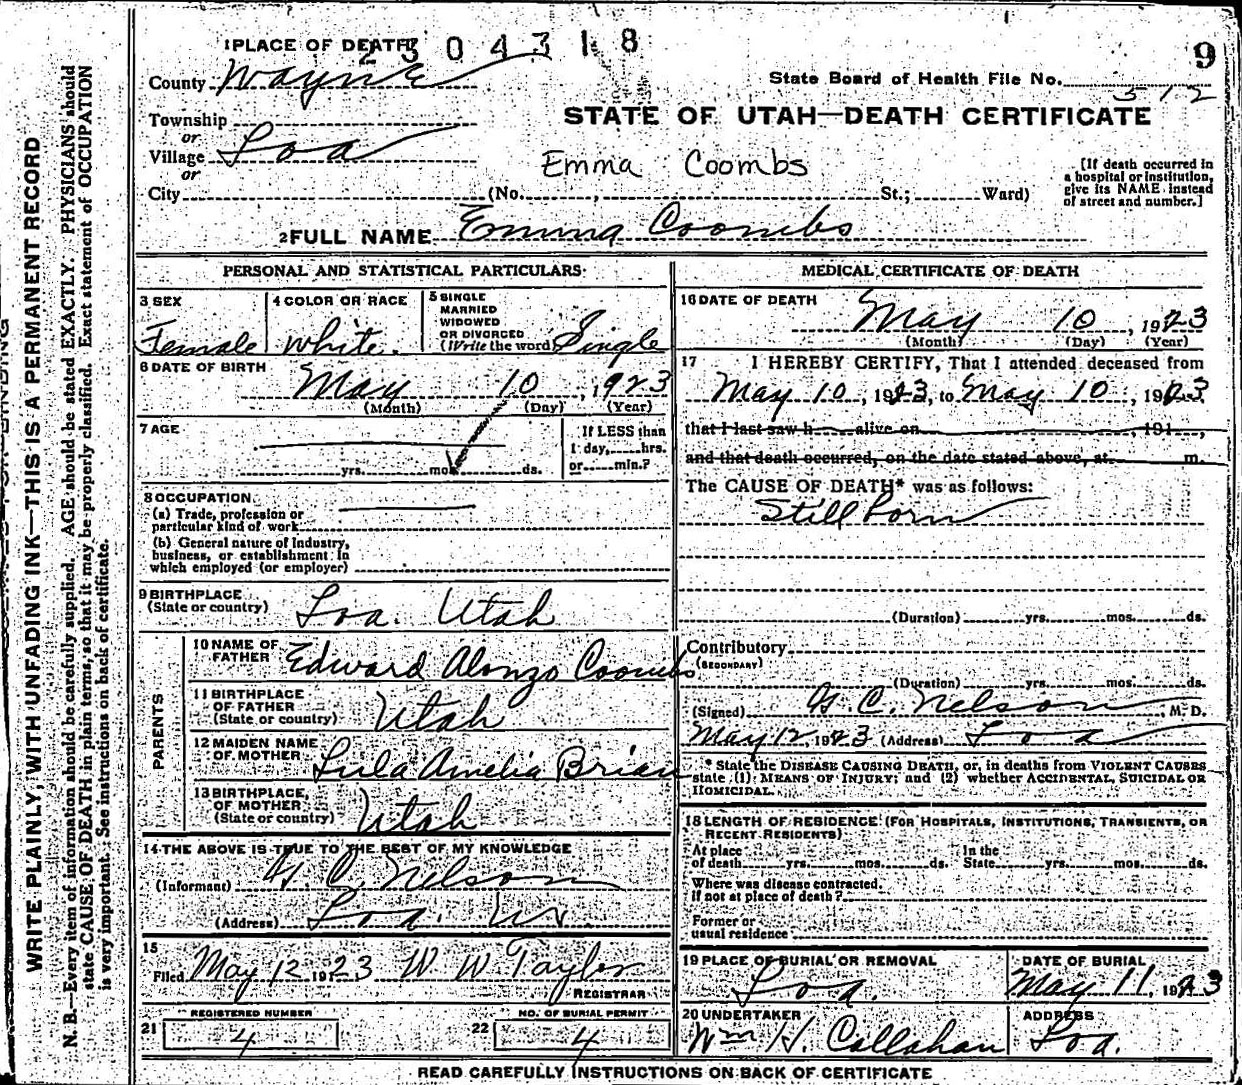 WRITE PLAINLY, WITH UNFADING INK—THIS IS A PERMANENT RECORD
N. B.—Every item of information should be carefully supplied. AGE should be stated EXACTLY. PHYSICIANS should
state CAUSE OF DEATH in plain terms, so that it may be properly classified. Exact statement of OCCUPATION
is very important. See instructions on back of certificate.
1 PLACE OF DEATH
2304318
9
County Wayne
State Board of Health File No.
512
STATE OF UTAH—DEATH CERTIFICATE
Township
or
Village Loa
or
Emma Coombs
City (No. , St.; Ward)
[If death occurred in
a hospital or institution,
give its NAME instead
of street and number.]
2 FULL NAME Emma Coombs
PERSONAL AND STATISTICAL PARTICULARS
3 SEX
Female
4 COLOR OR RACE
White.
5 SINGLE
MARRIED
WIDOWED
OR DIVORCED
(Write the word) Single
6 DATE OF BIRTH
May 10, 1923
(Month) (Day) (Year)
7 AGE
yrs. mos. ds.
If LESS than
1 day, hrs.
or min.?
8 OCCUPATION
(a) Trade, profession or
particular kind of work
(b) General nature of Industry,
business, or establishment in
which employed (or employer)
9 BIRTHPLACE
(State or country) Loa. Utah
PARENTS
10 NAME OF
FATHER Edward Alonzo Coombs
11 BIRTHPLACE
OF FATHER
(State or country) Utah
12 MAIDEN NAME
OF MOTHER Lula Amelia Brian
13 BIRTHPLACE
OF MOTHER
(State or country) Utah
14 THE ABOVE IS TRUE TO THE BEST OF MY KNOWLEDGE
(Informant) Nelson
(Address) Loa. Ut.
15
Filed May 12 1923 W W Taylor
REGISTRAR
REGISTERED NUMBER
21 4
NO. OF BURIAL PERMIT
22 4
MEDICAL CERTIFICATE OF DEATH
16 DATE OF DEATH
May 10, 1923
(Month) (Day) (Year)
17 I HEREBY CERTIFY, That I attended deceased from
May 10, 1923, to May 10, 1923
that I last saw h alive on , 191 ,
and that death occurred, on the date stated above, at m.
The CAUSE OF DEATH* was as follows:
Still born
(Duration) yrs. mos. ds.
Contributory
(SECONDARY)
(Duration) yrs. mos. ds.
(Signed) C. Nelson M. D.
May 12, 1923 (Address) Loa
* State the DISEASE CAUSING DEATH, or, in deaths from VIOLENT CAUSES
state (1) MEANS OF INJURY; and (2) whether ACCIDENTAL, SUICIDAL OR
HOMICIDAL.
18 LENGTH OF RESIDENCE (FOR HOSPITALS, INSTITUTIONS, TRANSIENTS, OR
RECENT RESIDENTS)
At place
of death yrs. mos. ds.
In the
State yrs. mos. ds.
Where was disease contracted,
if not at place of death?
Former or
usual residence
19 PLACE OF BURIAL OR REMOVAL
Loa.
DATE OF BURIAL
May 11, 1923
20 UNDERTAKER
Wm H. Callahan
ADDRESS
Loa.
READ CAREFULLY INSTRUCTIONS ON BACK OF CERTIFICATE